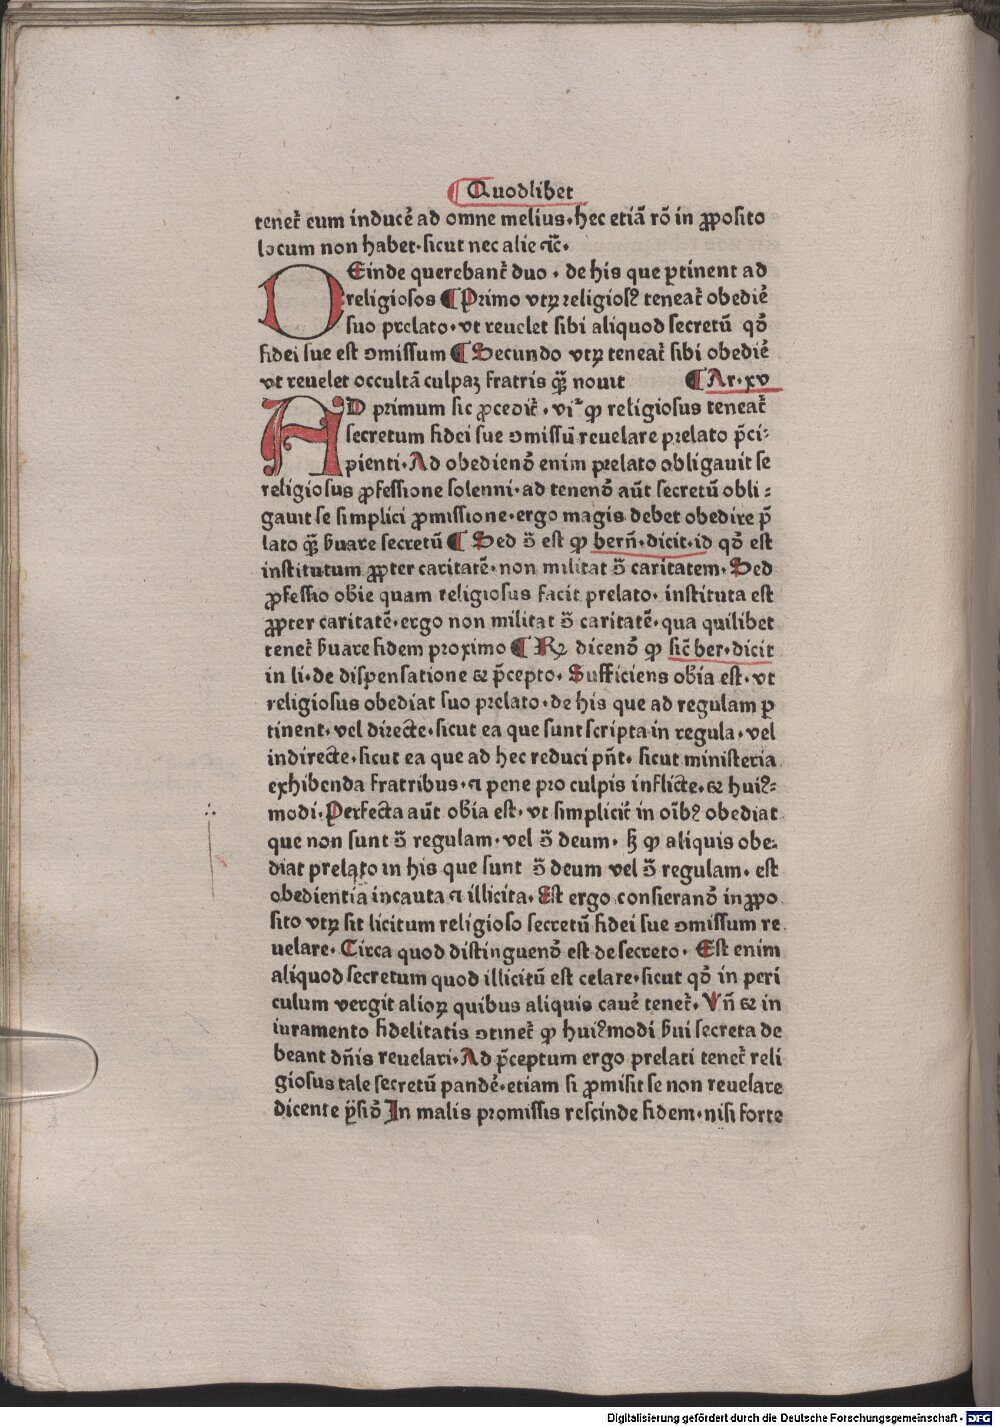 ¶ Quodlibet
teneť eum inducẽ ad omne melius. hec etiã rõ in ꝓposito
locum non habet. sicut nec alie ⁊c̃.
DEinde querebanť duo . de his que ꝑtinent ad
religiosos ¶ Primo vtꝝ religiosꝰ teneať obediẽ
suo prelato. vt reuelet sibi aliquod secretũ qõ
fidei sue est ꝯmissum ¶ Secundo vtꝝ teneať sibi obediẽ
vt reuelet occultã culpaꝫ fratris quã nouit ¶ Ar. xv
AD primum sic ꝓcediť . viᵈ ꝙ religiosus teneať
secretum fidei sue ꝯmissũ reuelare prelato p̃ci⸗
pienti. Ad obedienď enim prelato obligauit se
religiosus ꝓfessione solenni. ad tenenď aũt secretũ obli⸗
gauit se simplici ꝓmissione. ergo magis debet obedire p̃
lato quã ẜuare secretũ ¶ Sed ꝯ̃ est ꝙ berñ. dicit. id qõ est
institutum ꝓpter caritatẽ. non militat ꝯ̃ caritatem. Sed
ꝓfessio obẽie quam religiosus facit prelato. instituta est
ꝓpter caritatẽ. ergo non militat ꝯ̃ caritatẽ. qua quilibet
teneť ẜuare fidem proximo ¶ Rꝫ dicenď ꝙ sic̃ ber. dicit
in li. de dispensatione ⁊ p̃cepto. Sufficiens obĩa est. vt
religiosus obediat suo prelato. de his que ad regulam ꝑ
tinent. vel directe. sicut ea que sunt scripta in regula. vel
indirecte. sicut ea que ad hec reduci pñt. sicut ministeria
exhibenda fratribus. ⁊ pene pro culpis inflicte. ⁊ huiꝰ⸗
modi. Perfecta aũt obĩa est. vt simpliciť in oĩbꝰ obediat
que non sunt ꝯ̃ regulam. vel ꝯ̃ deum. ꝧ ꝙ aliquis obe⸗
diat prelato in his que sunt ꝯ̃ deum vel ꝯ̃ regulam. est
obedientia incauta ⁊ illicita. Est ergo consieranď in ꝓpo
sito vtꝝ sit licitum religioso secretũ fidei sue ꝯmissum re
uelare. Circa quod distinguenď est de secreto. Est enim
aliquod secretum quod illicitũ est celare. sicut qõ in peri
culum vergit alioꝝ quibus aliquis cauẽ teneť. Vñ ⁊ in
iuramento fidelitatis ꝯtineť ꝙ huiꝰmodi ẜui secreta de
beant dñis reuelari. Ad p̃ceptum ergo prelati teneť reli
giosus tale secretũ pandẽ. etiam si ꝓmisit se non reuelare
dicente ysiď In malis promissis rescinde fidem. nisi forte
Digitalisierung gefördert durch die Deutsche Forschungsgemeinschaft - DFG